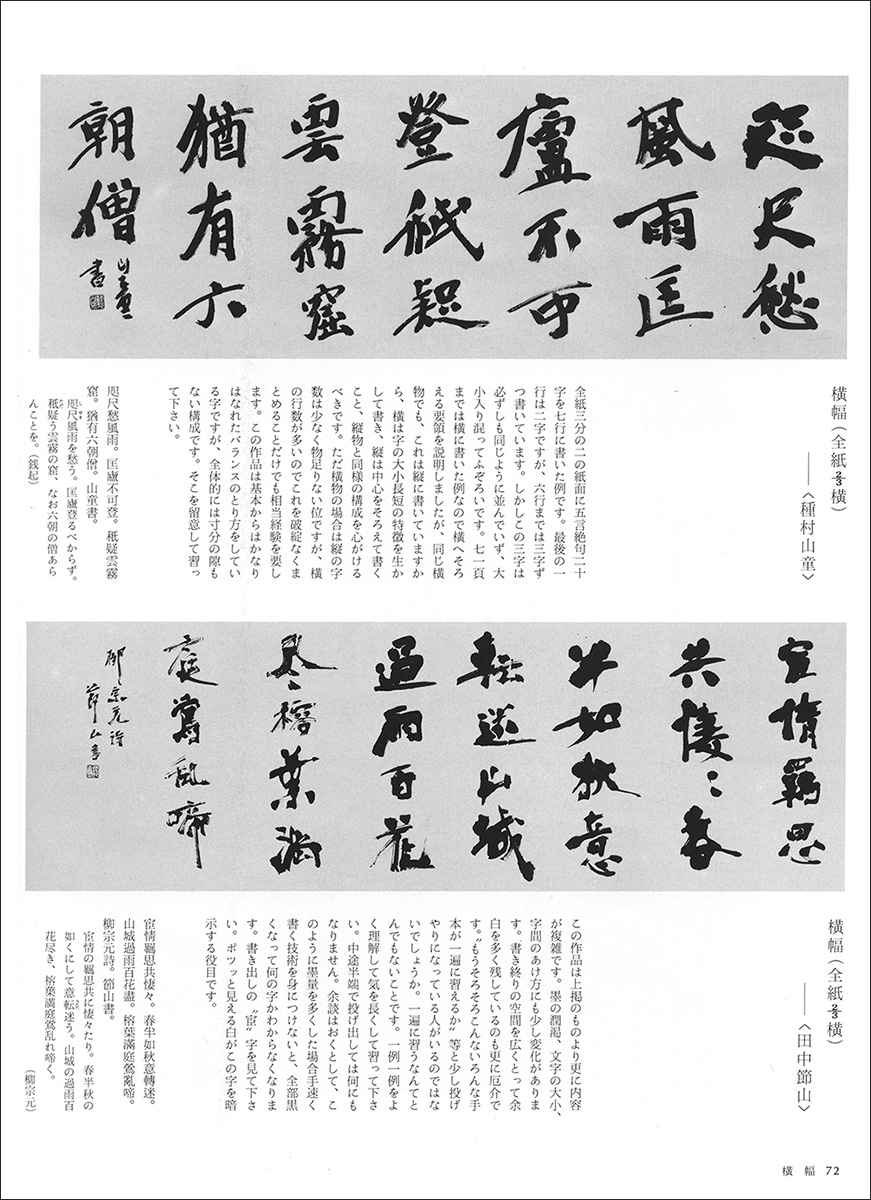 咫尺愁
風雨匡
廬不可
登秖疑
雲霧窟
猶有六
朝僧
山童書
横幅(全紙⅔横)
――〈種村山童〉
全紙三分の二の紙面に五言絶句二十
字を七行に書いた例です。最後の一
行は二字ですが、六行までは三字ず
つ書いています。しかしこの三字は
必ずしも同じように並んでいず、大
小入り混ってふぞろいです。七一頁
までは横に書いた例なので横へそろ
える要領を説明しましたが、同じ横
物でも、これは縦に書いていますか
ら、横は字の大小長短の特徴を生か
して書き、縦は中心をそろえて書く
こと、縦物と同様の構成を心がける
べきです。ただ横物の場合は縦の字
数は少なく物足りない位ですが、横
の行数が多いのでこれを破綻なくま
とめることだけでも相当経験を要し
ます。この作品は基本からはかなり
はなれたバランスのとり方をしてい
る字ですが、全体的には寸分の隙も
ない構成です。そこを留意して習っ
て下さい。
咫尺愁風雨。匡廬不可登。秖疑雲霧
窟。猶有六朝僧。山童書。
咫尺風雨を愁う。匡廬登るべからず。
秖疑う雲霧の窟、なお六朝の僧あら
んことを。(銭起)
宦情羈思
共悽〻春
半如秋意
転迷山城
過雨百花
尽榕葉満
庭鶯乱啼
柳宗元詩
節山書
横幅(全紙⅔横)
――〈田中節山〉
この作品は上掲のものより更に内容
が複雑です。墨の潤渇、文字の大小、
字間のあけ方にも少し変化がありま
す。書き終りの空間を広くとって余
白を多く残しているのも更に厄介で
す。〝もうそろそろこんないろんな手
本が一遍に習えるか〟等と少し投げ
やりになっている人がいるのではな
いでしょうか。一遍に習うなんてと
んでもないことです。一例一例をよ
く理解して気を長くして習って下さ
い。中途半端で投げ出しては何にも
なりません。余談はおくとして、こ
のように墨量を多くした場合手速く
書く技術を身につけないと、全部黒
くなって何の字かわからなくなりま
す。書き出しの〝宦〟字を見て下さ
い。ポツッと見える白がこの字を暗
示する役目です。
宦情羈思共悽々。春半如秋意轉迷。
山城過雨百花盡。榕葉滿庭鶯亂啼。
柳宗元詩。節山書。
宦情の羈思共に悽々たり。春半秋の
如くにして意転迷う。山城の過雨百
花尽き、榕葉満庭鶯乱れ啼く。
(柳宗元)
横幅 72